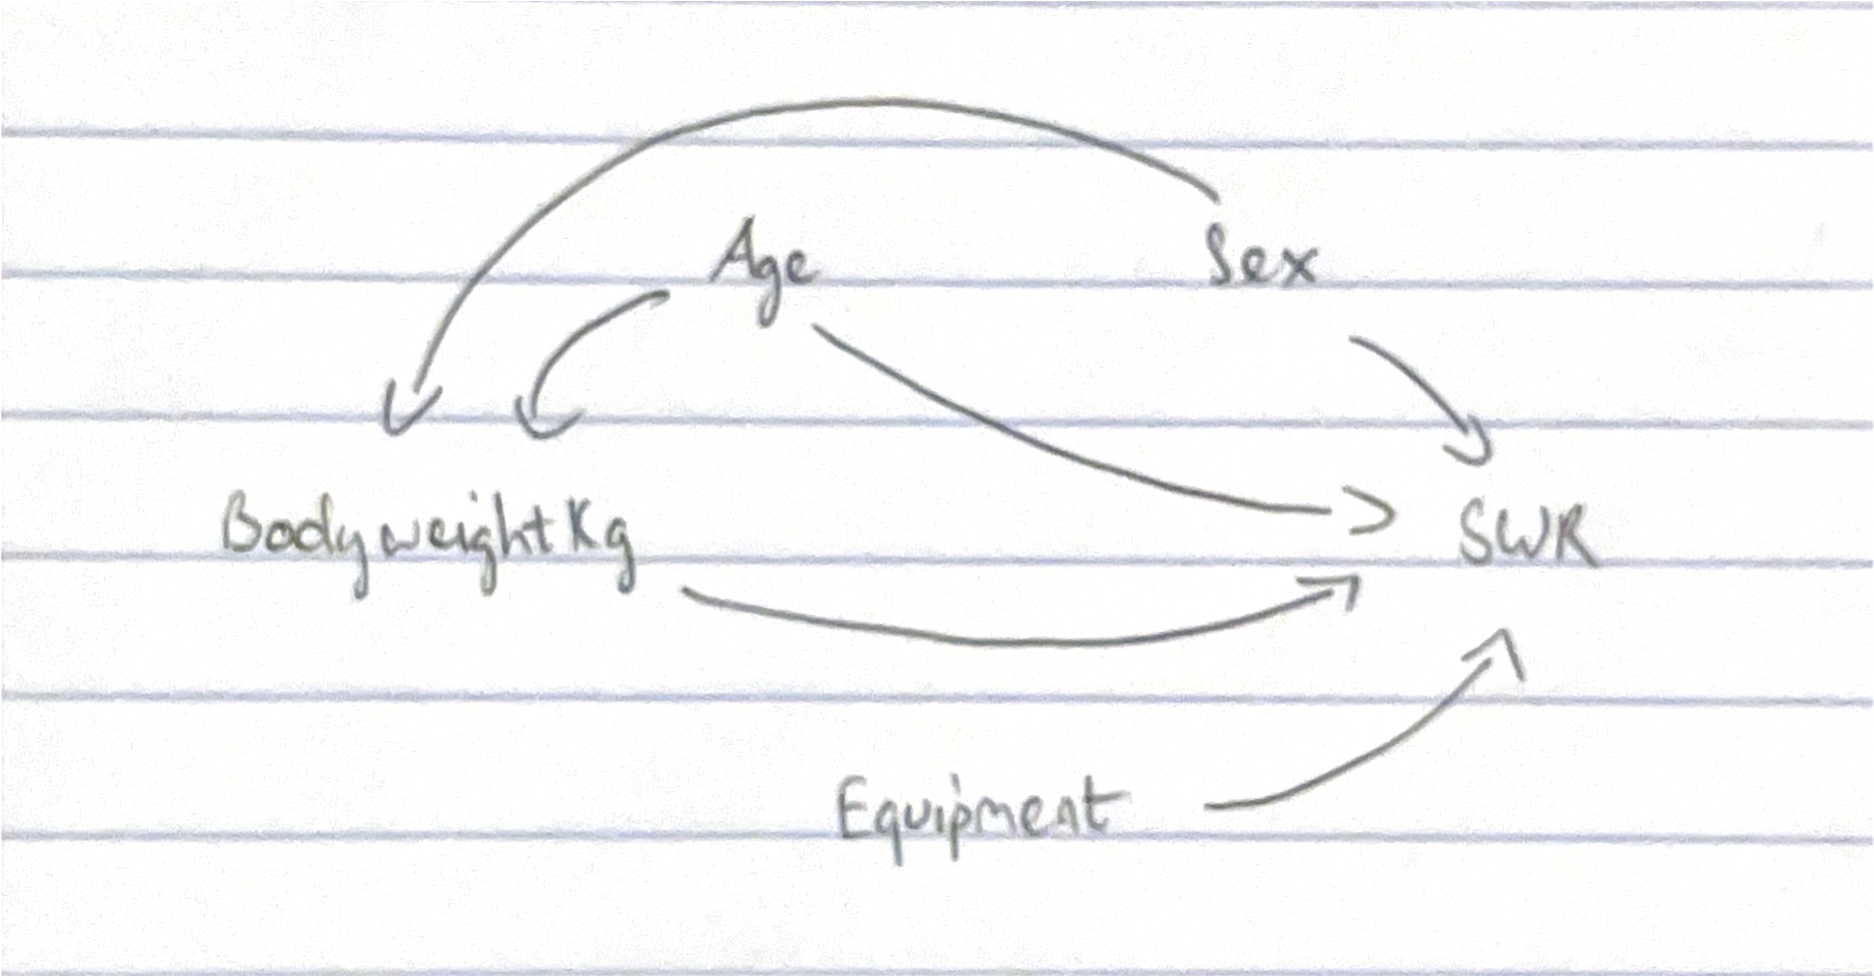 Age Sex
BodyweightKg SWR
Equipment